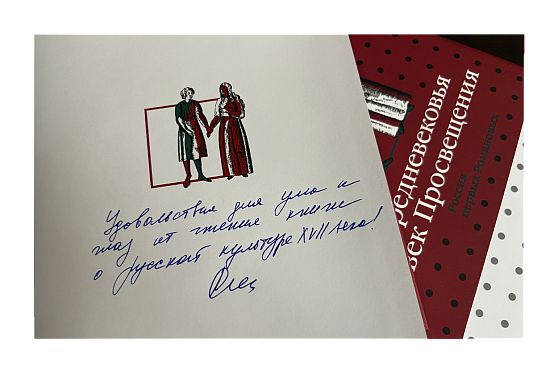 Удовольствия для ума и
глаз от чтения книги
о русской культуре XVII века!
редневековья
век Просвещения
Россия
первых Романовых